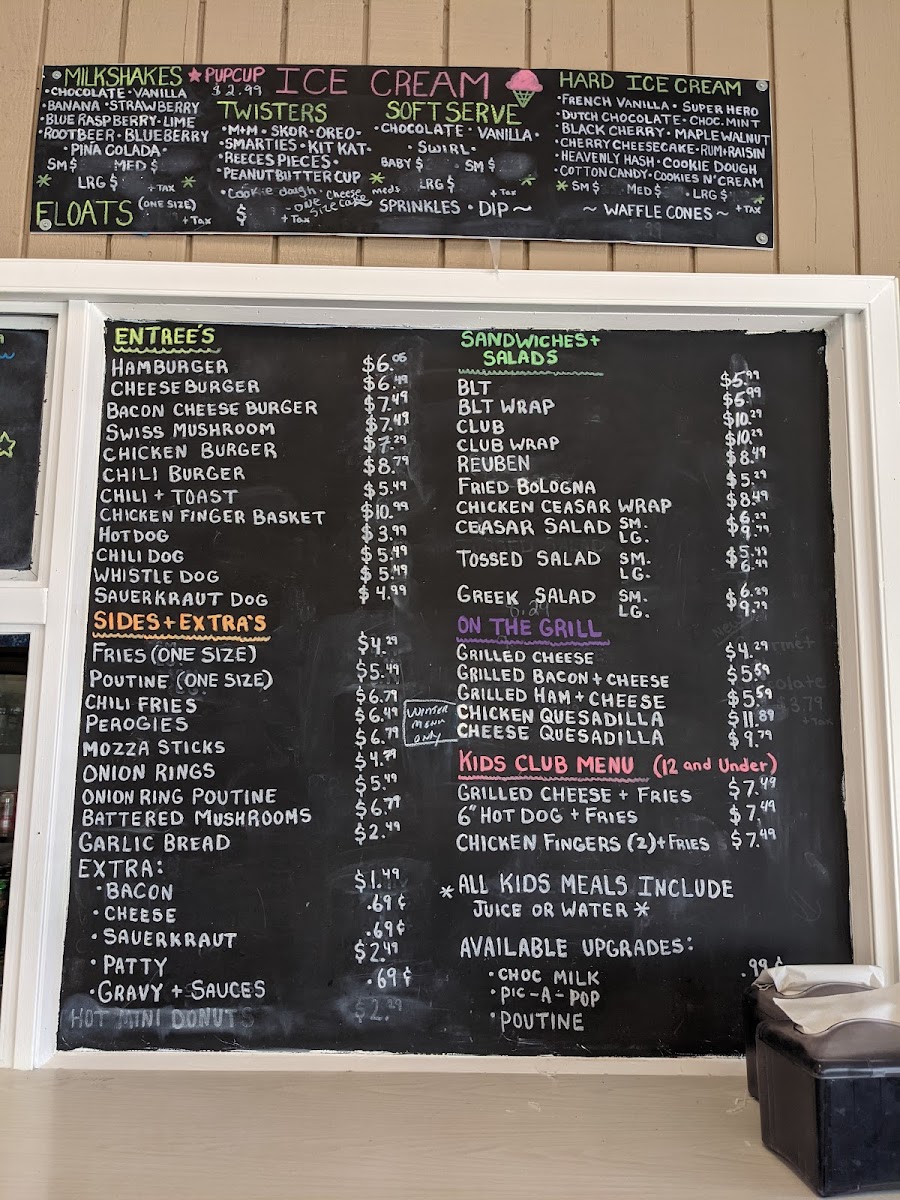 MILKSHAKES
• CHOCOLATE • VANILLA
• BANANA • STRAWBERRY
• BLUE RASPBERRY • LIME
• ROOTBEER • BLUEBERRY
• PIÑA COLADA •
SM $ MED $
* LRG $ + TAX *
FLOATS (ONE SIZE)
+ TAX
★ PUPCUP
$2.99
ICE CREAM
TWISTERS
• M+M • SKOR • OREO •
• SMARTIES • KIT KAT •
• REECES PIECES •
• PEANUT BUTTER CUP
• Cookie dough • Cheese
- ONE SIZE
$ + TAX
SOFT SERVE
• CHOCOLATE • VANILLA •
• SWIRL •
BABY $ SM $
* meds LRG $ + TAX *
~ SPRINKLES • DIP ~
HARD ICE CREAM
• FRENCH VANILLA • SUPER HERO
• DUTCH CHOCOLATE • CHOC. MINT
• BLACK CHERRY • MAPLE WALNUT
• CHERRY CHEESECAKE • RUM+RAISIN
• HEAVENLY HASH • COOKIE DOUGH
• COTTON CANDY • COOKIES N' CREAM
* SM $ MED $ LRG $ *
~ WAFFLE CONES ~ + TAX
ENTREE'S
HAMBURGER $6.05
CHEESEBURGER $6.49
BACON CHEESE BURGER $7.49
SWISS MUSHROOM $7.49
CHICKEN BURGER $7.29
CHILI BURGER $8.79
CHILI + TOAST $5.49
CHICKEN FINGER BASKET $10.99
HOTDOG $3.99
CHILI DOG $5.49
WHISTLE DOG $5.49
SAUERKRAUT DOG $4.99
SIDES + EXTRA'S
FRIES (ONE SIZE) $4.29
POUTINE (ONE SIZE) $5.49
CHILI FRIES $6.79
PEROGIES $6.49
MOZZA STICKS $6.79
ONION RINGS $4.79
ONION RING POUTINE $5.49
BATTERED MUSHROOMS $6.79
GARLIC BREAD $2.49
EXTRA:
• BACON $1.49
• CHEESE .69¢
• SAUERKRAUT .69¢
• PATTY $2.49
• GRAVY + SAUCES .69¢
HOT MINI DONUTS $2.29
SANDWICHES +
SALADS
BLT $5.99
BLT WRAP $6.99
CLUB $10.29
CLUB WRAP $10.29
REUBEN $8.49
FRIED BOLOGNA $5.29
CHICKEN CEASAR WRAP $8.49
CEASAR SALAD SM. $6.29
LG. $9.79
TOSSED SALAD SM. $5.49
LG. $6.49
GREEK SALAD SM. $6.29
LG. $9.79
ON THE GRILL
GRILLED CHEESE $4.29
GRILLED BACON + CHEESE $5.59
GRILLED HAM + CHEESE $5.59
WINTER
MENU
ONLY
CHICKEN QUESADILLA $11.89
CHEESE QUESADILLA $9.79
KIDS CLUB MENU (12 and Under)
GRILLED CHEESE + FRIES $7.49
6" HOT DOG + FRIES $7.49
CHICKEN FINGERS (2) + FRIES $7.49
* ALL KIDS MEALS INCLUDE
JUICE OR WATER *
AVAILABLE UPGRADES:
• CHOC MILK .99¢
• PIC-A-POP
• POUTINE